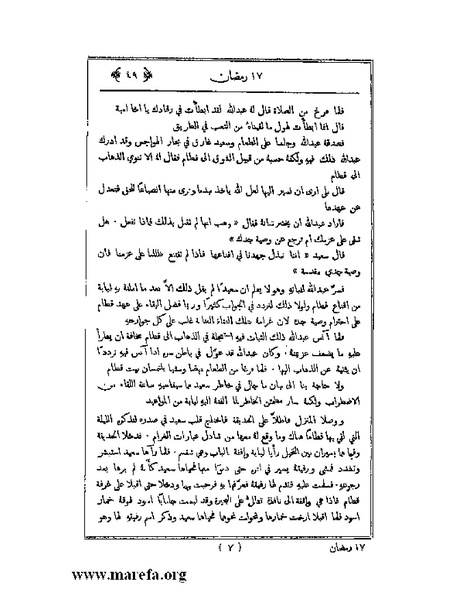 ١٧ رمضان ﴿ ٤٩ ﴾
فلما فرغ من الصلاة قال له عبدالله لقد ابطأت في رقادك يا اخا امية
قال انما ابطأت لهول ما لقيناه من التعب في الطريق
فصدقه عبدالله وجلسا على الطعام وسعيد غارق في بحار الهواجس وقد ادرك
عبدالله ذلك فيه ولكنه حسبه من قبيل الشوق الى قطام فقال له الا تنوي الذهاب
الى قطام
قال بلى ارى ان نسير اليها لعل الله ياخذ بيدنا ونرى منها انصياعًا للحق فتعدل
عن عهدها
فاراد عبدالله ان يختبر ثباته فقال « وهب انها لم تقبل بذلك فماذا تفعل . هل
تبقى على عزمك ام ترجع عن وصية جدك »
قال سعيد « اننا نبذل جهدنا في اقناعها فاذا لم تقتنع ظللنا على عزمنا فان
وصية جدي مقدسة »
فسرّ عبدالله لثباته وهو لا يعلم ان سعيدًا لم يقل ذلك الاّ بعد ما املته به لبابة
من اقناع قطام ولولا ذلك لتردد في الجواب كثيرًا وربما فضل البقاء على عهد قطام
على احترام وصية جده لان غرامه بتلك الفتاة الفتانة غلب على كل جوارحه
فلما آنس عبدالله ذلك الثبات فيه استعجله في الذهاب الى قطام مخافة ان يطرأ
عليه ما يضعف عزيمتهُ . وكان عبدالله قد عوّل في باطن سره اذا آنس فيه ترددًا
ان يثنيه عن الذهاب اليها . فلما فرغا من الطعام نهضا ومشيا يلتمسان بيت قطام
ولا حاجة بنا الى بيان ما جال في خاطر سعيد مما سيفاجيه ساعة اللقاء من
الاضطراب ولكنه سار مطمئن الخاطر لما القته اليه لبابة من المواعيد
ووصلا المنزل فاطلاَّ على الحديقة فاختلج قلب سعيد في صدره لتذكره الليلة
التي لقي بها قطامًا هناك وما وقع له معها من تبادل عبارات الغرام . فدخلا الحديقة
وفيما هما يسيران بين النخيل رأيا لبابة واقفة بالباب وهي تبتسم . فلما رآها سعيد استبشر
وتقدم فمشى ورفيقه يسير في اثره حتى دنوا منها فحياها سعيد كأنه لم يرها بعد
رجوعه . فسلمت عليه فقدم لها رفيقه فعرّفها به فرحبت بهما ودخلا حتى اقبلا على غرفة
قطام فاذا هي واقفة الى نافذة تطل على البحيرة وقد لبست جلبابًا اسود فوقه خمار
اسود فلما اقبلا ارخت خمارها وتحولت نحوهما فحياها سعيد وذكر اسم رفيقه لها وهو
١٧ رمضان ( ٧ )
www.marefa.org